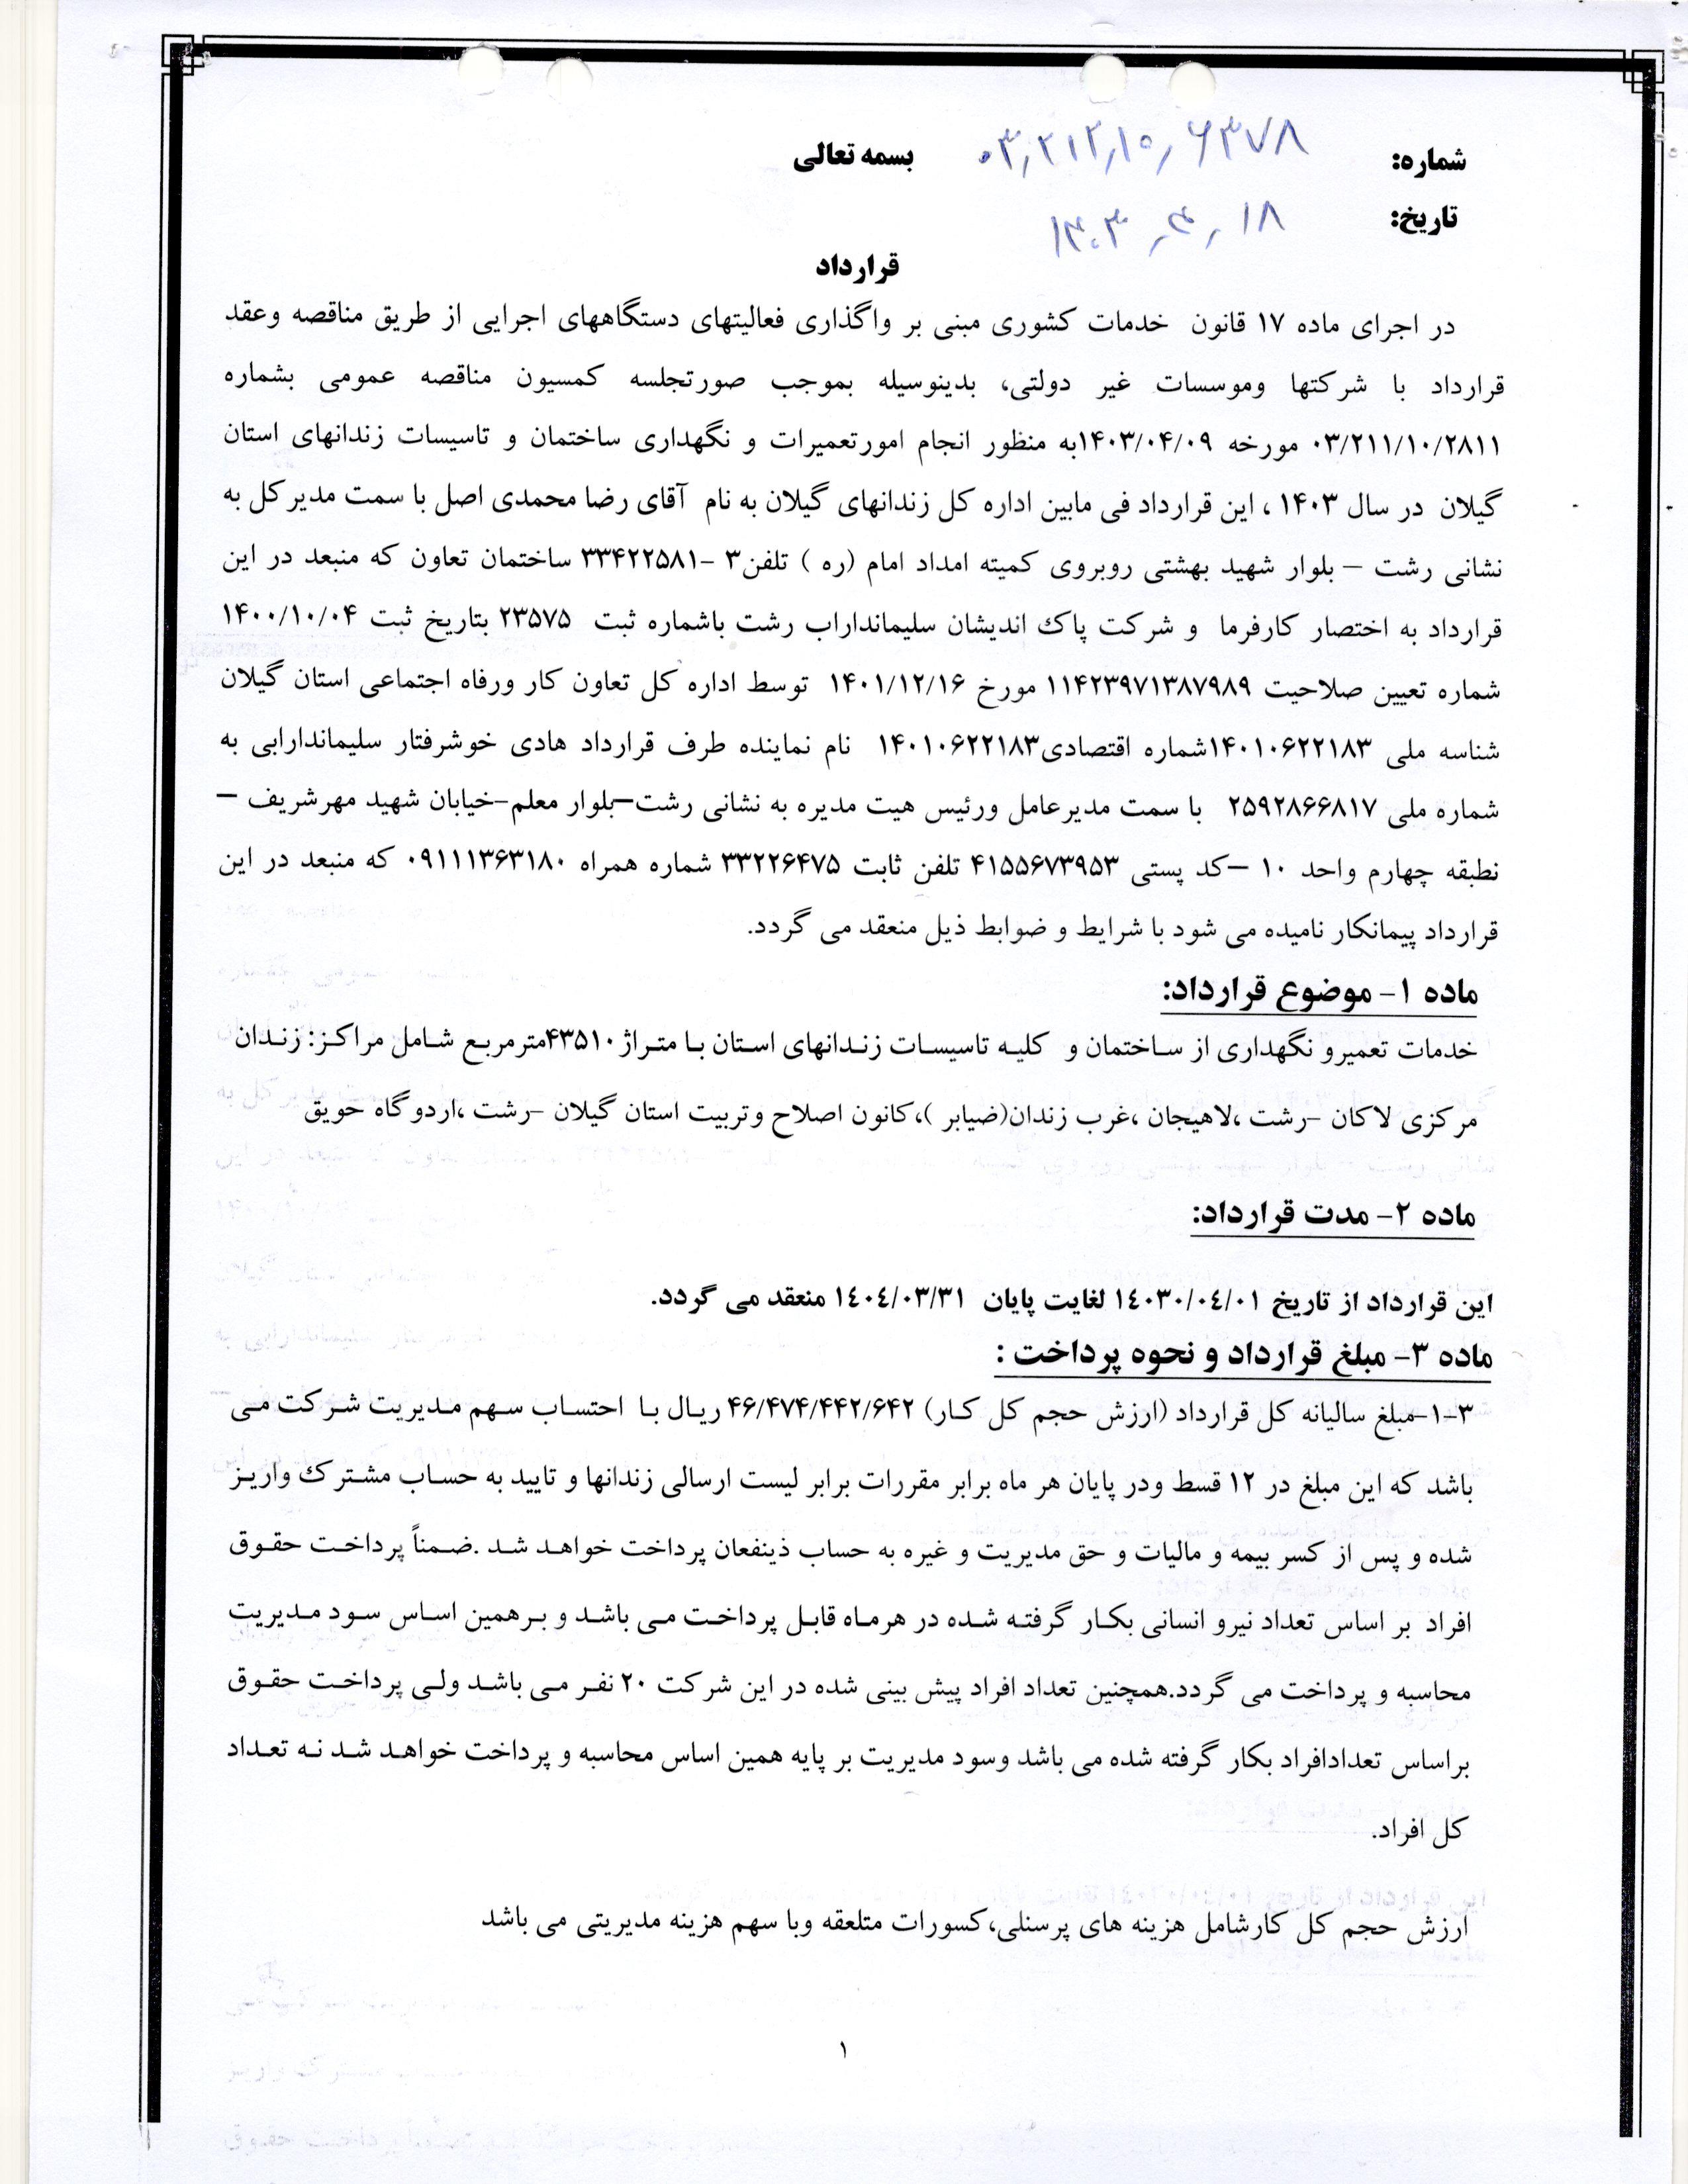 بسمه تعالی
شماره: ۰۳,۲۱۲,۱۰,۶۳۷۸
تاریخ: ۱۴۰۳,۴,۱۸
قرارداد
در اجرای ماده ۱۷ قانون خدمات کشوری مبنی بر واگذاری فعالیتهای دستگاههای اجرایی از طریق مناقصه وعقد
قرارداد با شرکتها وموسسات غیر دولتی، بدینوسیله بموجب صورتجلسه کمسیون مناقصه عمومی بشماره
۰۳/۲۱۱/۱۰/۲۸۱۱ مورخه ۱۴۰۳/۰۴/۰۹به منظور انجام امورتعمیرات و نگهداری ساختمان و تاسیسات زندانهای استان
گیلان در سال ۱۴۰۳ ، این قرارداد فی مابین اداره کل زندانهای گیلان به نام آقای رضا محمدی اصل با سمت مدیرکل به
نشانی رشت – بلوار شهید بهشتی روبروی کمیته امداد امام (ره ) تلفن۳ -۳۳۴۲۲۵۸۱ ساختمان تعاون که منبعد در این
قرارداد به اختصار کارفرما و شرکت پاک اندیشان سلیمانداراب رشت باشماره ثبت ۲۳۵۷۵ بتاریخ ثبت ۱۴۰۰/۱۰/۰۴
شماره تعیین صلاحیت ۱۱۴۲۳۹۷۱۳۸۷۹۸۹ مورخ ۱۴۰۱/۱۲/۱۶ توسط اداره کل تعاون کار ورفاه اجتماعی استان گیلان
شناسه ملی ۱۴۰۱۰۶۲۲۱۸۳شماره اقتصادی۱۴۰۱۰۶۲۲۱۸۳ نام نماینده طرف قرارداد هادی خوشرفتار سلیماندارابی به
شماره ملی ۲۵۹۲۸۶۶۸۱۷ با سمت مدیرعامل ورئیس هیت مدیره به نشانی رشت–بلوار معلم-خیابان شهید مهرشریف –
نطبقه چهارم واحد ۱۰ –کد پستی ۴۱۵۵۶۷۳۹۵۳ تلفن ثابت ۳۳۲۲۶۴۷۵ شماره همراه ۰۹۱۱۱۳۶۳۱۸۰ که منبعد در این
قرارداد پیمانکار نامیده می شود با شرایط و ضوابط ذیل منعقد می گردد.
ماده ۱- موضوع قرارداد:
خدمات تعمیرو نگهداری از ساختمان و کلیه تاسیسات زندانهای استان با متراژ۴۳۵۱۰مترمربع شامل مراکز: زندان
مرکزی لاکان -رشت ،لاهیجان ،غرب زندان(ضیابر )،کانون اصلاح وتربیت استان گیلان -رشت ،اردوگاه حویق
ماده ۲- مدت قرارداد:
این قرارداد از تاریخ ۱٤۰۳۰/۰٤/۰۱ لغایت پایان ۱٤۰٤/۰۳/۳۱ منعقد می گردد.
ماده ۳- مبلغ قرارداد و نحوه پرداخت :
۳-۱-مبلغ سالیانه کل قرارداد (ارزش حجم کل کار) ۴۶/۴۷۴/۴۴۲/۶۴۲ ریال با احتساب سهم مدیریت شرکت می
باشد که این مبلغ در ۱۲ قسط ودر پایان هر ماه برابر مقررات برابر لیست ارسالی زندانها و تایید به حساب مشترک واریز
شده و پس از کسر بیمه و مالیات و حق مدیریت و غیره به حساب ذینفعان پرداخت خواهد شد .ضمناً پرداخت حقوق
افراد بر اساس تعداد نیرو انسانی بکار گرفته شده در هرماه قابل پرداخت می باشد و برهمین اساس سود مدیریت
محاسبه و پرداخت می گردد.همچنین تعداد افراد پیش بینی شده در این شرکت ۲۰ نفر می باشد ولی پرداخت حقوق
براساس تعدادافراد بکار گرفته شده می باشد وسود مدیریت بر پایه همین اساس محاسبه و پرداخت خواهد شد نه تعداد
کل افراد.
ارزش حجم کل کارشامل هزینه های پرسنلی،کسورات متلعقه وبا سهم هزینه مدیریتی می باشد
۱